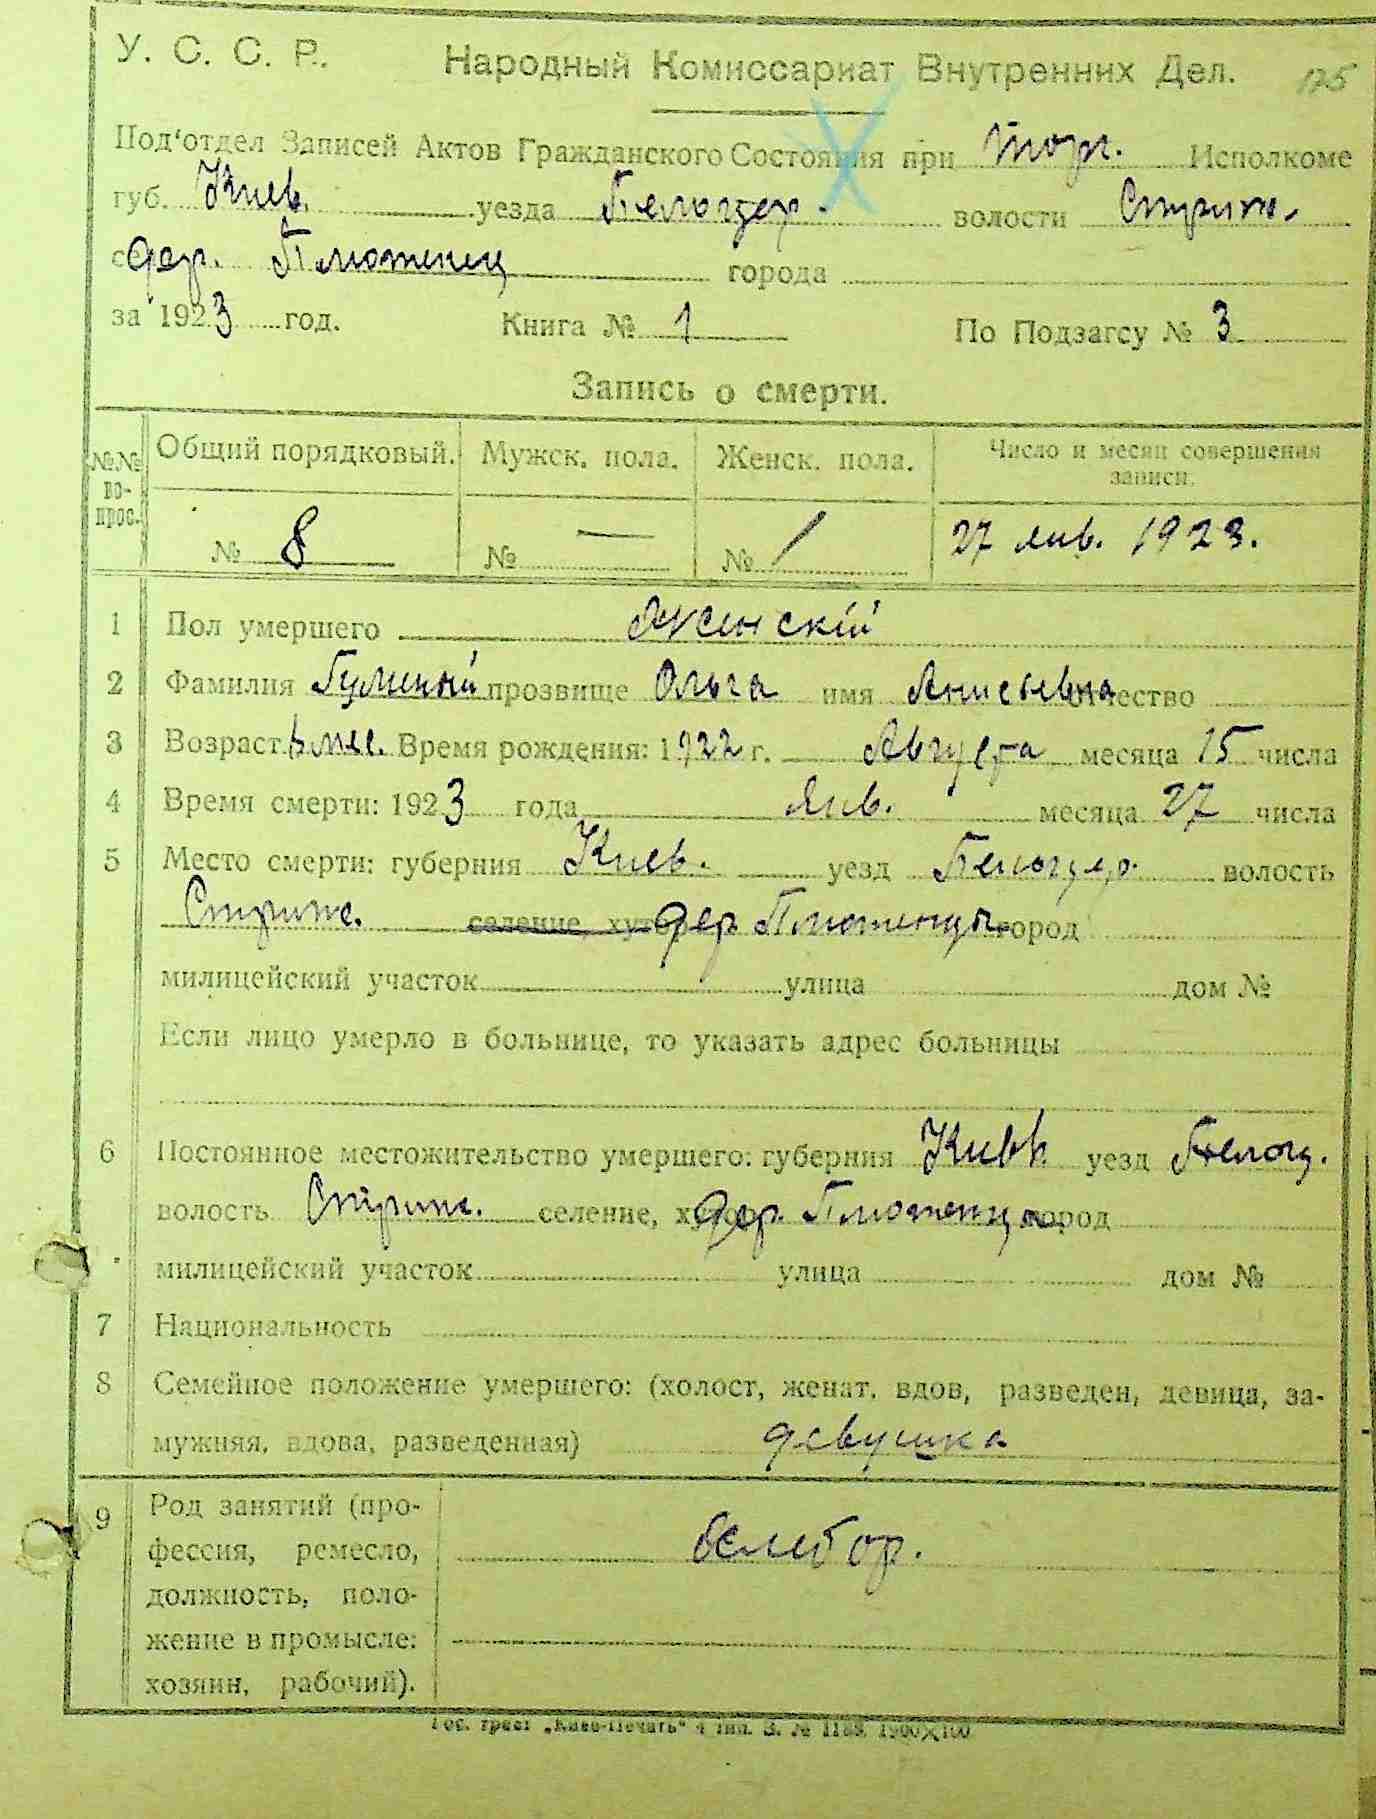 У. С. С. Р. Народный Комиссариат Внутренних Дел. 125
Под'отдел Записей Актов Гражданского Состояния при Исполкоме
губ. Киев. уезда Белоцер. волости Стриж.
дер. города
за 1923 год. Книга № 1 По Подзагсу № 3
Запись о смерти.
№№ вопрос. Общий порядковый. Мужск. пола. Женск. пола. Число и месяц совершения записи.
№ 8 № — № 1 27 янв. 1923.
1 Пол умершего Женскій
2 Фамилия прозвище Ольга имя Анисьевна отчество
3 Возраст 6 мес. Время рождения: 1922 г. Августа месяца 15 числа
4 Время смерти: 1923 года Янв. месяца 27 числа
5 Место смерти: губерния Киев. уезд Белоцер. волость
Стриж. селение, хутор дер город
милицейский участок улица дом №
Если лицо умерло в больнице, то указать адрес больницы
6 Постоянное местожительство умершего: губерния Киев. уезд Белоц.
волость Стриж. селение, хутор дер. город
милицейский участок улица дом №
7 Национальность
8 Семейное положение умершего: (холост, женат, вдов, разведен, девица, за-
мужняя, вдова, разведенная) девушка
9 Род занятий (про-
фессия, ремесло,
должность, поло-
жение в промысле:
хозяин, рабочий).
Гос. трест „Киев-Печать“ 4 тип. З. № 1188. 1900×100